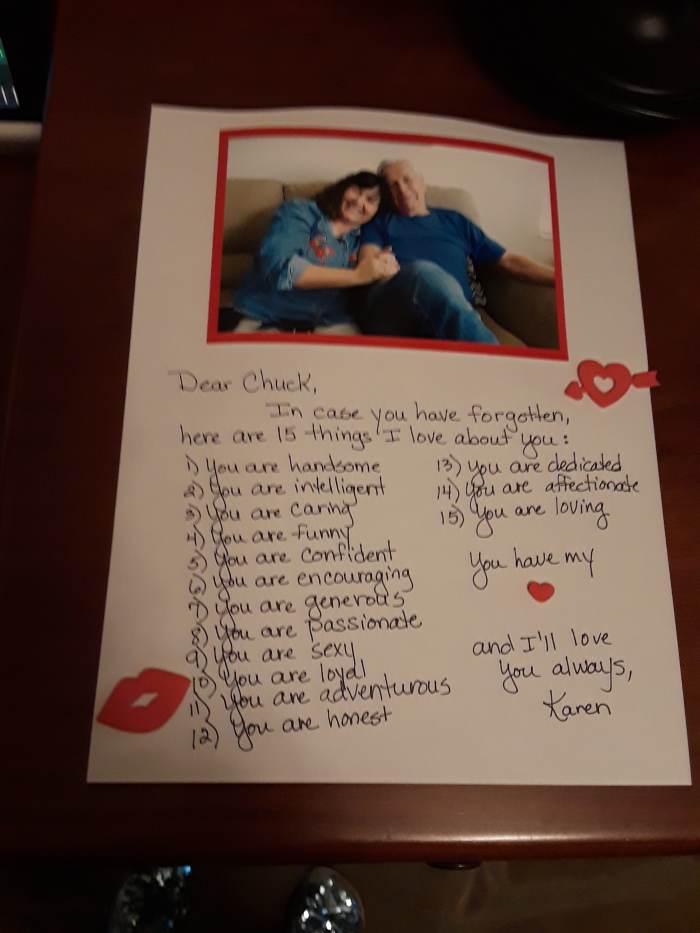 Dear Chuck,
In case you have forgotten,
here are 15 things I love about you:
1) You are handsome
2) You are intelligent
3) You are caring
4) You are funny
5) You are confident
6) You are encouraging
7) You are generous
8) You are passionate
9) You are sexy
10) You are loyal
11) You are adventurous
12) You are honest
13) You are dedicated
14) You are affectionate
15) You are loving
You have my
and I'll love
you always,
Karen